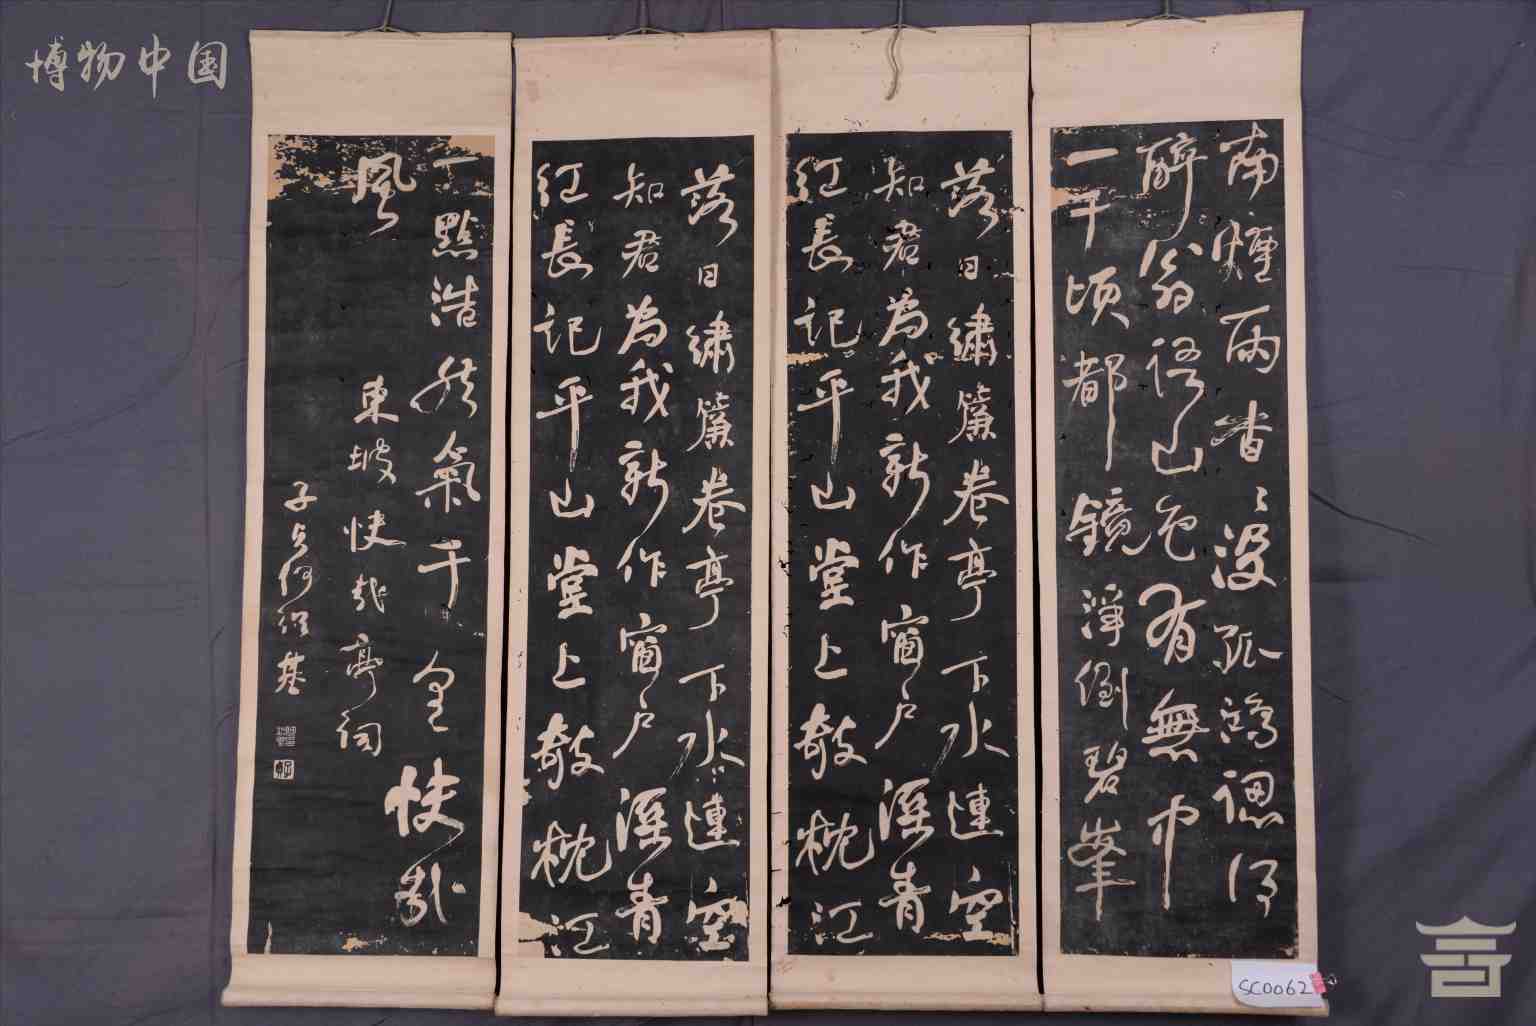 博物中国
南煙雨杳〻没孤鴻認得
醉翁語山色有無中
一千頃都鏡淨倒碧峯
落日繡簾卷亭下水連空
知君為我新作窗户溼青
紅長記平山堂上欹枕江
落日繡簾卷亭下水連空
知君為我新作窗户溼青
紅長記平山堂上欹枕江
一點浩然氣千里快哉
風
東坡快哉亭詞
子貞何紹基
SC0062